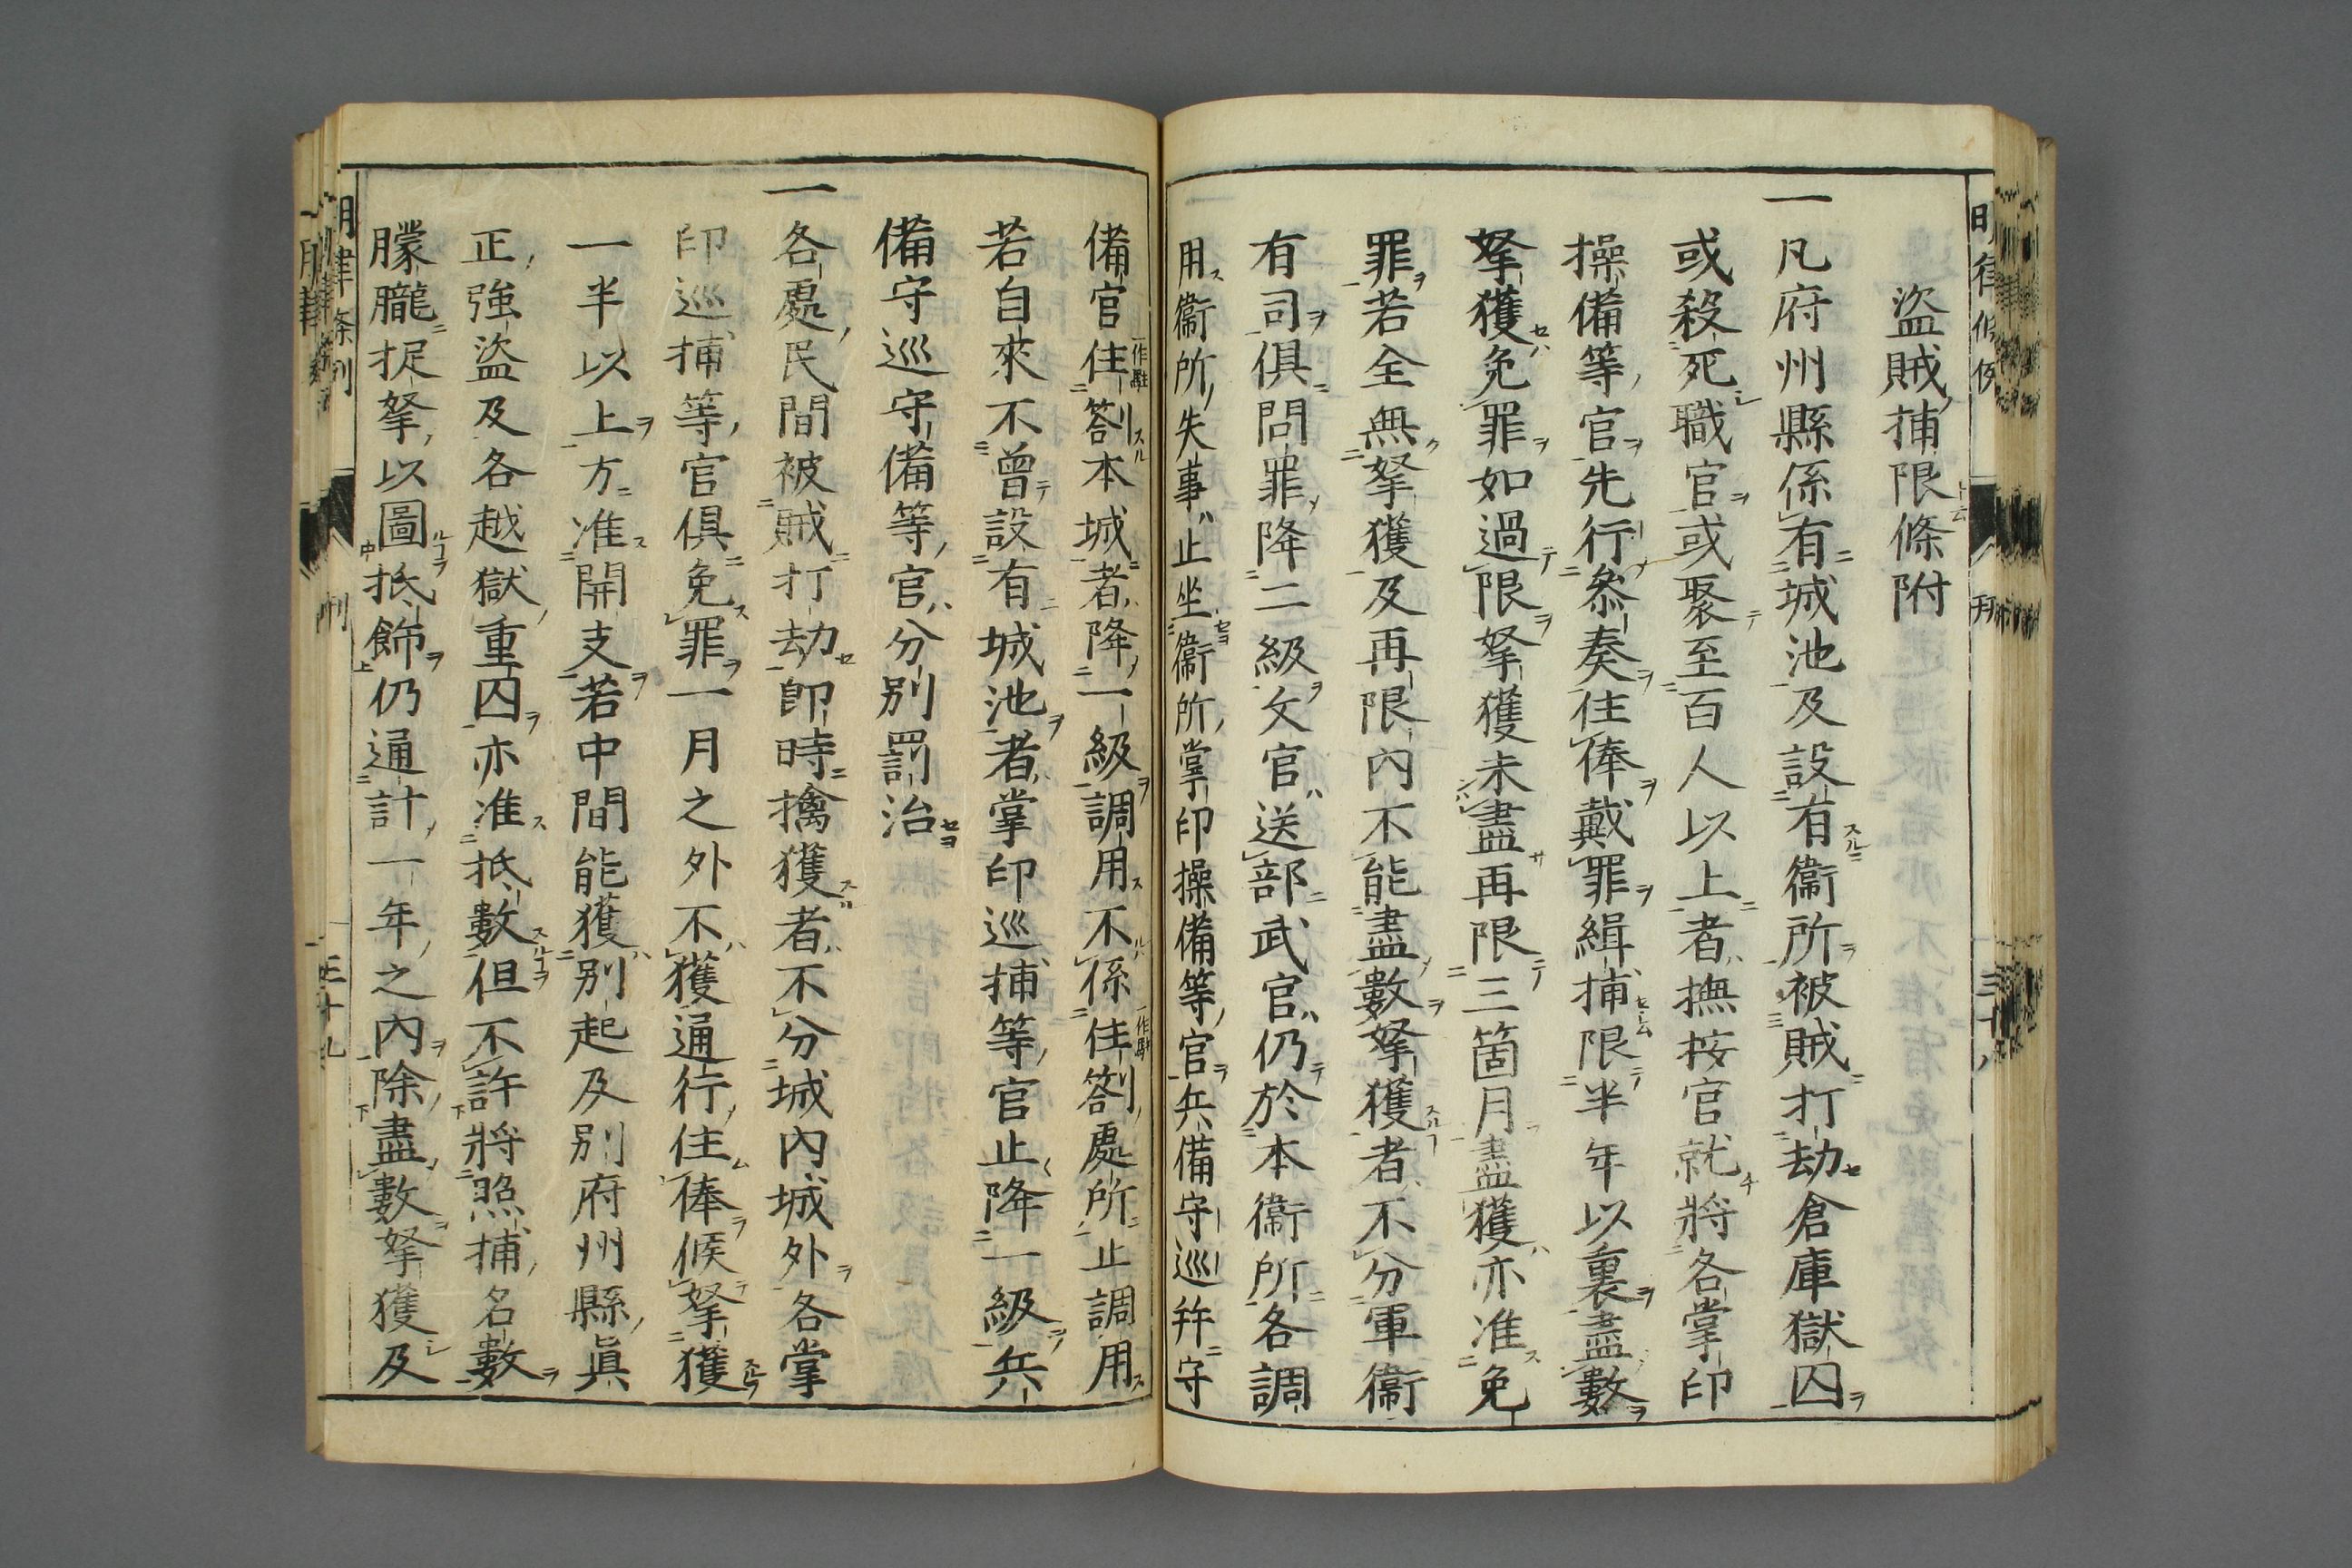 盜賊捕限條附
一凡府州縣係有城池及設有衞所被賊打劫倉庫獄囚
或殺死職官或聚至百人以上者撫按官就將各掌印
操備等官先行叅奏住俸戴罪緝捕限半年以裏盡數
拏獲免罪如過限拏獲未盡再限三箇月盡獲亦准免
罪若全無拏獲及再限內不能盡數拏獲者不分軍衞
有司俱問罪降二級文官送部武官仍於本衞所各調
用衞所失事止坐衞所掌印操備等官兵備守巡幷守
備官住劄本城者降一級調用不係住劄處所止調用
若自來不曾設有城池者掌印巡捕等官止降一級兵
備守巡守備等官分別罰治
一各處民間被賊打劫卽時擒獲者不分城內城外各掌
印巡捕等官俱免罪一月之外不獲通行住俸候拏獲
一半以上方准開支若中間能獲別起及別府州縣眞
正強盜及各越獄重囚亦准抵數但不許將照捕名數
朦朧捉拏以圖抵飾仍通計一年之內除盡數拏獲及